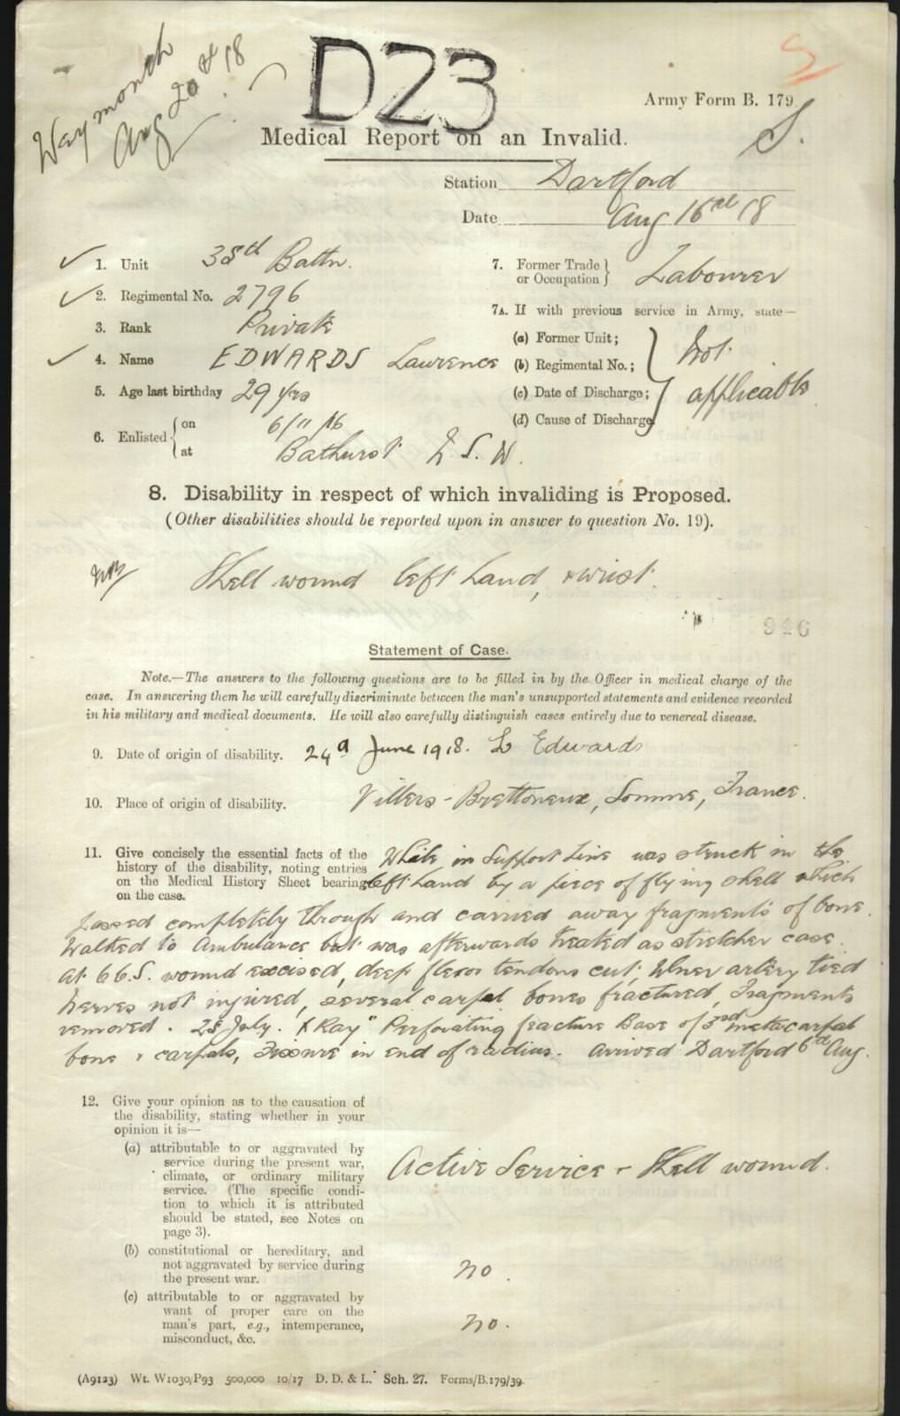 Weymouth
Aug 20th 18
D23
Army Form B. 179
S.
Medical Report on an Invalid.
Station Dartford
Date Aug 16th 18
1. Unit 38th Battn.
2. Regimental No. 2796
3. Rank Private
4. Name EDWARDS Lawrence
5. Age last birthday 29 yrs
6. Enlisted { on 6/11/16
at Bathurst N.S.W.
7. Former Trade or Occupation } Labourer
7A. If with previous service in Army, state—
(a) Former Unit;
(b) Regimental No.;
(c) Date of Discharge;
(d) Cause of Discharge
Not
applicable
8. Disability in respect of which invaliding is Proposed.
(Other disabilities should be reported upon in answer to question No. 19).
Shell wound left hand, & wrist.
926
Statement of Case.
Note.—The answers to the following questions are to be filled in by the Officer in medical charge of the
case. In answering them he will carefully discriminate between the man's unsupported statements and evidence recorded
in his military and medical documents. He will also carefully distinguish cases entirely due to venereal disease.
9. Date of origin of disability. 24th June 1918. L Edwards
10. Place of origin of disability. Villers-Brettoneux, Somme, France.
11. Give concisely the essential facts of the
history of the disability, noting entries
on the Medical History Sheet bearing
on the case.
While in Support Line was struck in the
left hand by a piece of flying shell which
passed completely through and carried away fragments of bone.
Walked to Ambulance but was afterwards treated as stretcher case.
At C.C.S. wound excised, deep flexor tendons cut, Ulner artery tied
Nerves not injured, several carpal bones fractured, Fragments
removed. 28 July. X Ray "Perforating fracture Base of 3rd metacarpal
bone & carpals, Fissure in end of radius. Arrived Dartford 6th Aug.
12. Give your opinion as to the causation of
the disability, stating whether in your
opinion it is—
(a) attributable to or aggravated by
service during the present war,
climate, or ordinary military
service. (The specific condi-
tion to which it is attributed
should be stated, see Notes on
page 3).
Active Service - Shell wound.
(b) constitutional or hereditary, and
not aggravated by service during
the present war.
no.
(c) attributable to or aggravated by
want of proper care on the
man's part, e.g., intemperance,
misconduct, &c.
no.
(A9123) Wt. W1030/P93 500,000 10/17 D. D. & L. Sch. 27. Forms/B.179/39